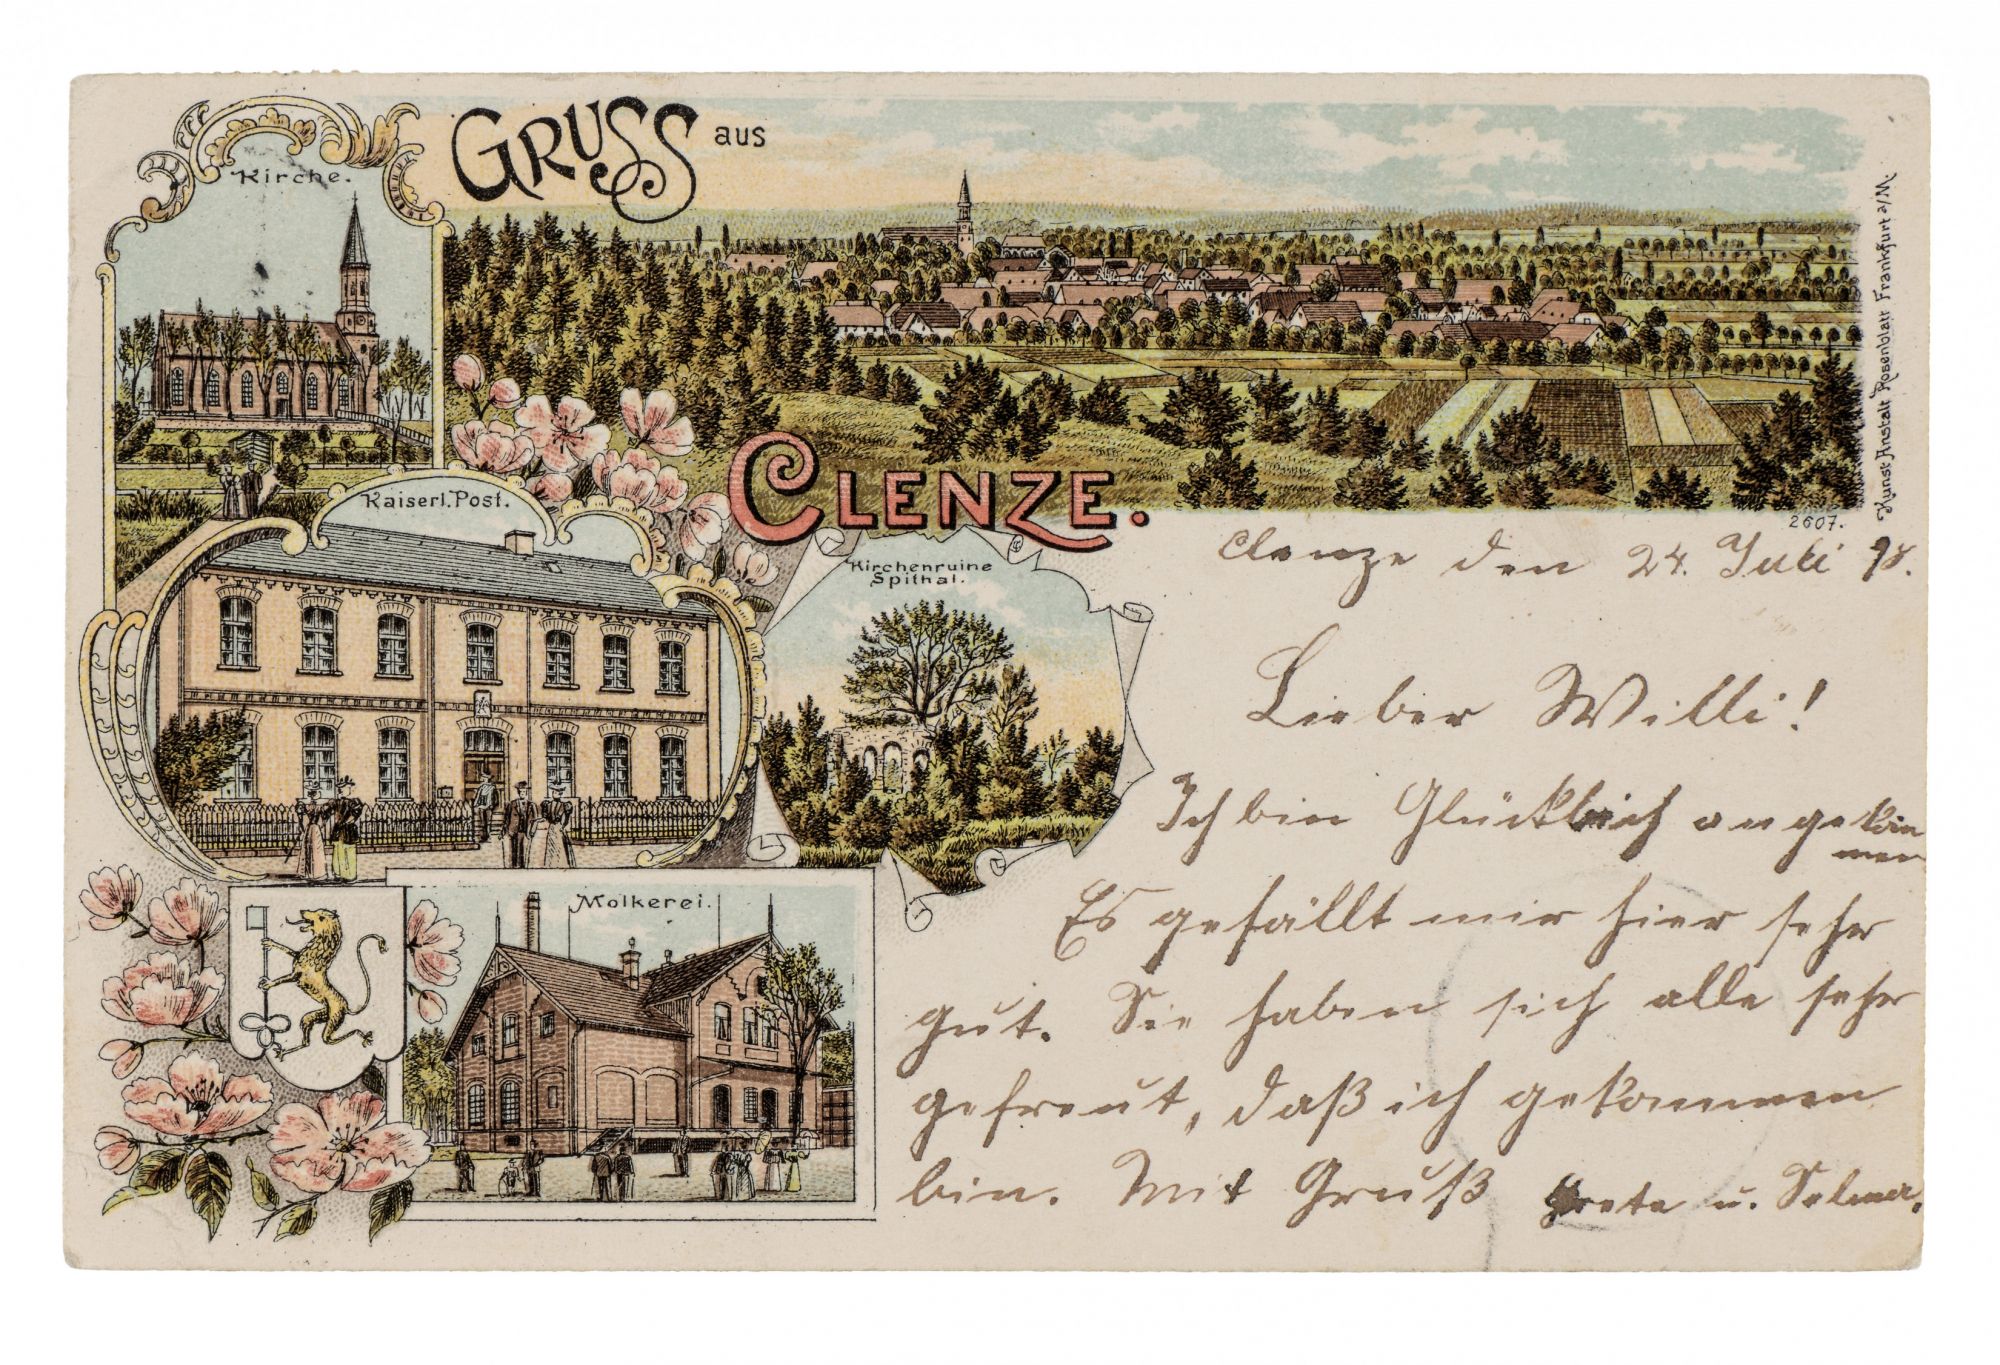 Kirche.
GRUSS aus
CLENZE.
Kaiserl. Post.
Kirchenruine
Spithal.
Molkerei.
Kunst-Anstalt Rosenblatt Frankfurt a/M.
2607.
Clenze den 24. Juli 98.
Lieber Willi!
Ich bin Glücklich angekom
men
Es gefällt mir hier sehr
gut. Sie haben sich alle sehr
gefreut, daß ich gekommen
bin. Mit Gruß Grete u. Selma.